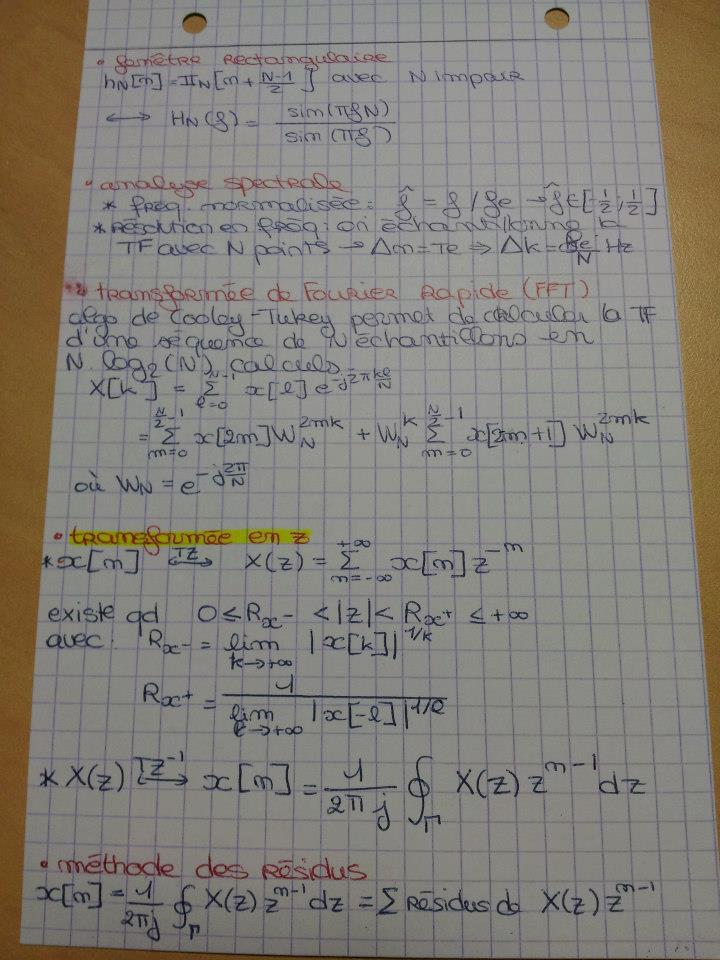 • fenêtre rectangulaire
h_N[n] = Π_N[n + (N-1)/2] avec N impair
⟷ H_N(f) = sin(πfN) / sin(πf)
• analyse spectrale
* fréq. normalisée: f̂ = f / fe → f̂ ∈ [-1/2, 1/2]
* résolution en fréq: on échantillonne la
TF avec N points → Δn = Te ⇒ Δk = fe/N Hz
transformée de Fourier Rapide (FFT)
algo de Cooley-Tukey permet de calculer la TF
d'une séquence de N échantillons en
N log₂(N) calculs.
X[k] = Σ_{l=0}^{N-1} x[l] e^{-j2π kl/N}
= Σ_{m=0}^{N/2-1} x[2m] W_N^{2mk} + W_N^k Σ_{m=0}^{N/2-1} x[2m+1] W_N^{2mk}
où W_N = e^{-j 2π/N}
• transformée en z
* x[n] ⟷^{TZ} X(z) = Σ_{n=-∞}^{+∞} x[n] z^{-n}
existe qd 0 ≤ R_{x^-} < |z| < R_{x^+} ≤ +∞
avec: R_{x^-} = lim_{k→+∞} |x[k]|^{1/k}
R_{x^+} = 1 / lim_{l→+∞} |x[-l]|^{1/l}
* X(z) ⟷^{TZ^{-1}} x[n] = 1/(2πj) ∮_Γ X(z) z^{n-1} dz
• méthode des résidus
x[n] = 1/(2πj) ∮_Γ X(z) z^{n-1} dz = Σ Résidus de X(z) z^{n-1}